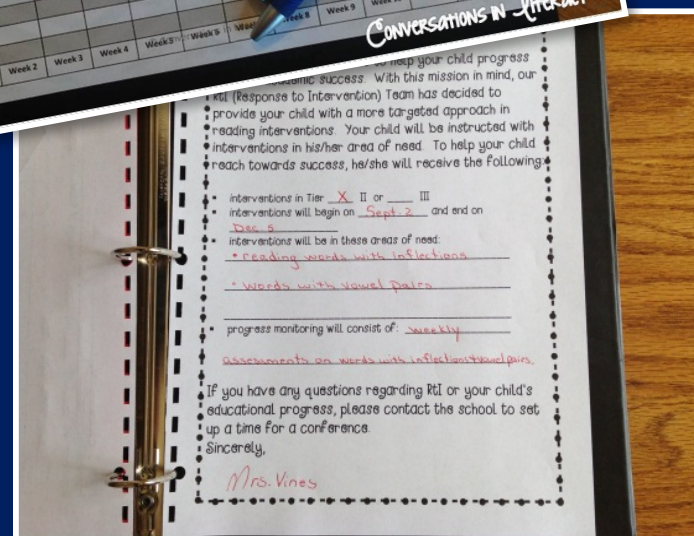 Week 2 Week 3 Week 4 Week 5 Week 6 Week 8 Week 9
Conversations in Literacy
to help your child progress
academic success. With this mission in mind, our
RtI (Response to Intervention) Team has decided to
provide your child with a more targeted approach in
reading interventions. Your child will be instructed with
interventions in his/her area of need. To help your child
reach towards success, he/she will receive the following:
interventions in Tier X II or ____ III
interventions will begin on Sept. 2 and end on
Dec. 5
interventions will be in these areas of need:
• reading words with inflections
• words with vowel pairs
progress monitoring will consist of: weekly
assessments on words with inflections + vowel pairs.
If you have any questions regarding RtI or your child's
educational progress, please contact the school to set
up a time for a conference.
Sincerely,
Mrs. Vines